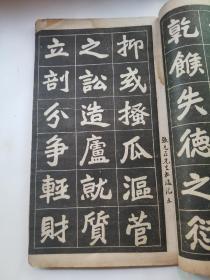 乾餱失德之愆
抑或搔瓜漚菅
之訟造廬就質
立剖分爭輕財